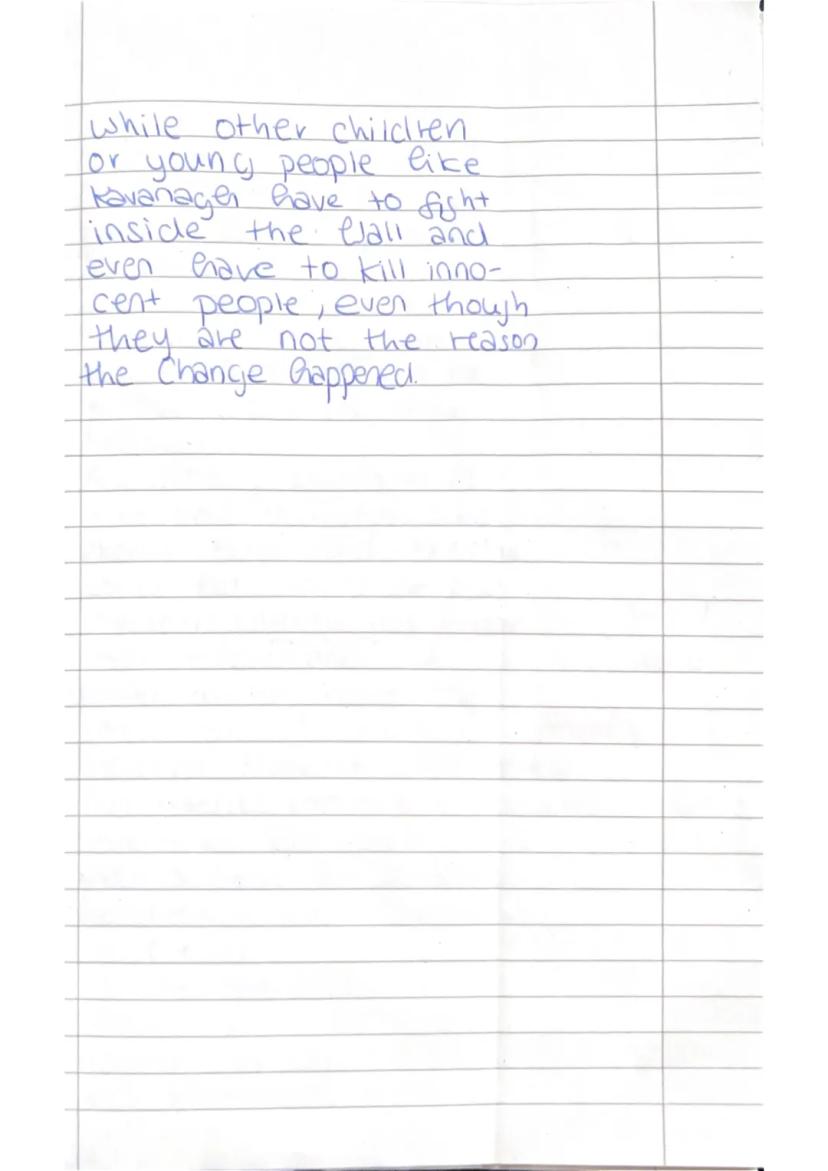 while other children
or young people like
Kavanagh have to fight
inside the Wall and
even have to kill inno-
cent people, even though
they are not the reason
the Change happened.